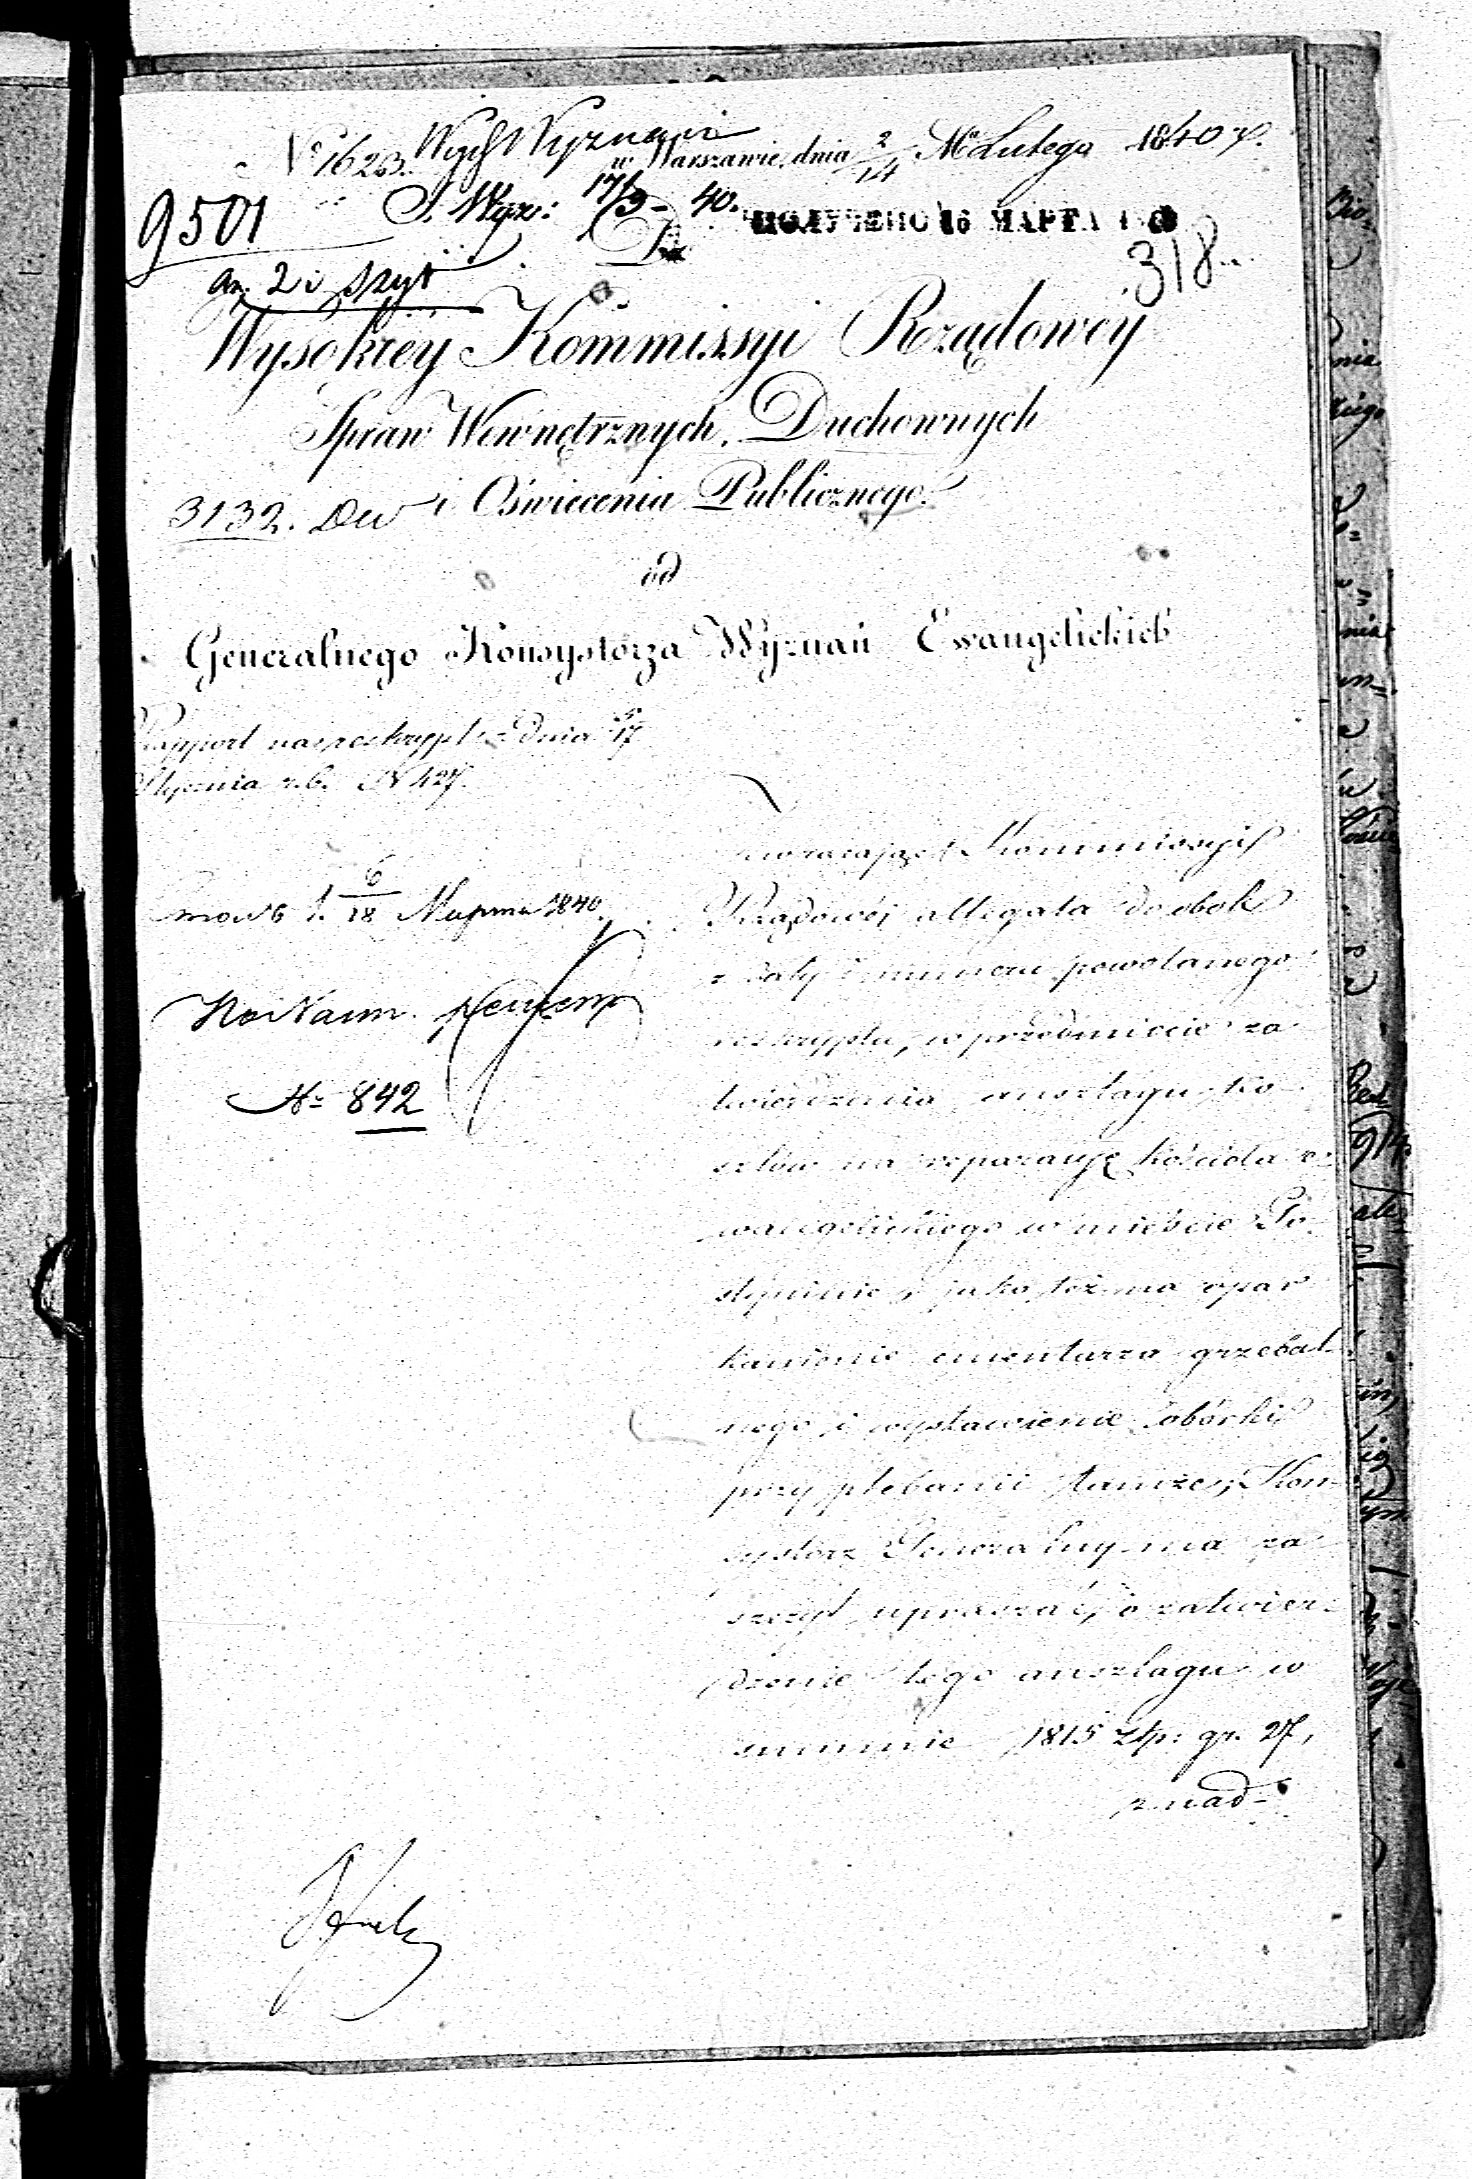 N° 1623. Wydz Wyznań
w Warszawie, dnia 2/14 Mca Lutego 1840 r.
9501
S. Wyz: 17/3 - 40.
ПОЛУЧЕНО 16 МАРТА
Do
318
an. 2 i szyt
Wysokiey Kommissyi Rządowey
Spraw Wewnętrznych, Duchownych
i Oświecenia Publicznego.
3132.
od
Generalnego Konsystorza Wyznań Ewangelickich
Rapport na reskrypt z dnia 5/17
Stycznia r.b. N 427.
Zwracając Kommissyi
Rządowej allegata do obok
z daty i numeru powołanego
reskryptu, w przedmiocie za
twierdzenia anszlagu ko
sztów na reparacyę kościoła e-
wangelickiego w mieście Go
styninie, jako też na opar
kanienie cmentarza grzebal-
nego i wystawienie obórki
przy plebanii tamże, Kon-
systorz Generalny ma za
szczyt upraszać, o zatwier-
dzenie tego anszlagu w
summie 1815 złp: gr. 27,
z nad-
6/18 Марта 1840
№ 842